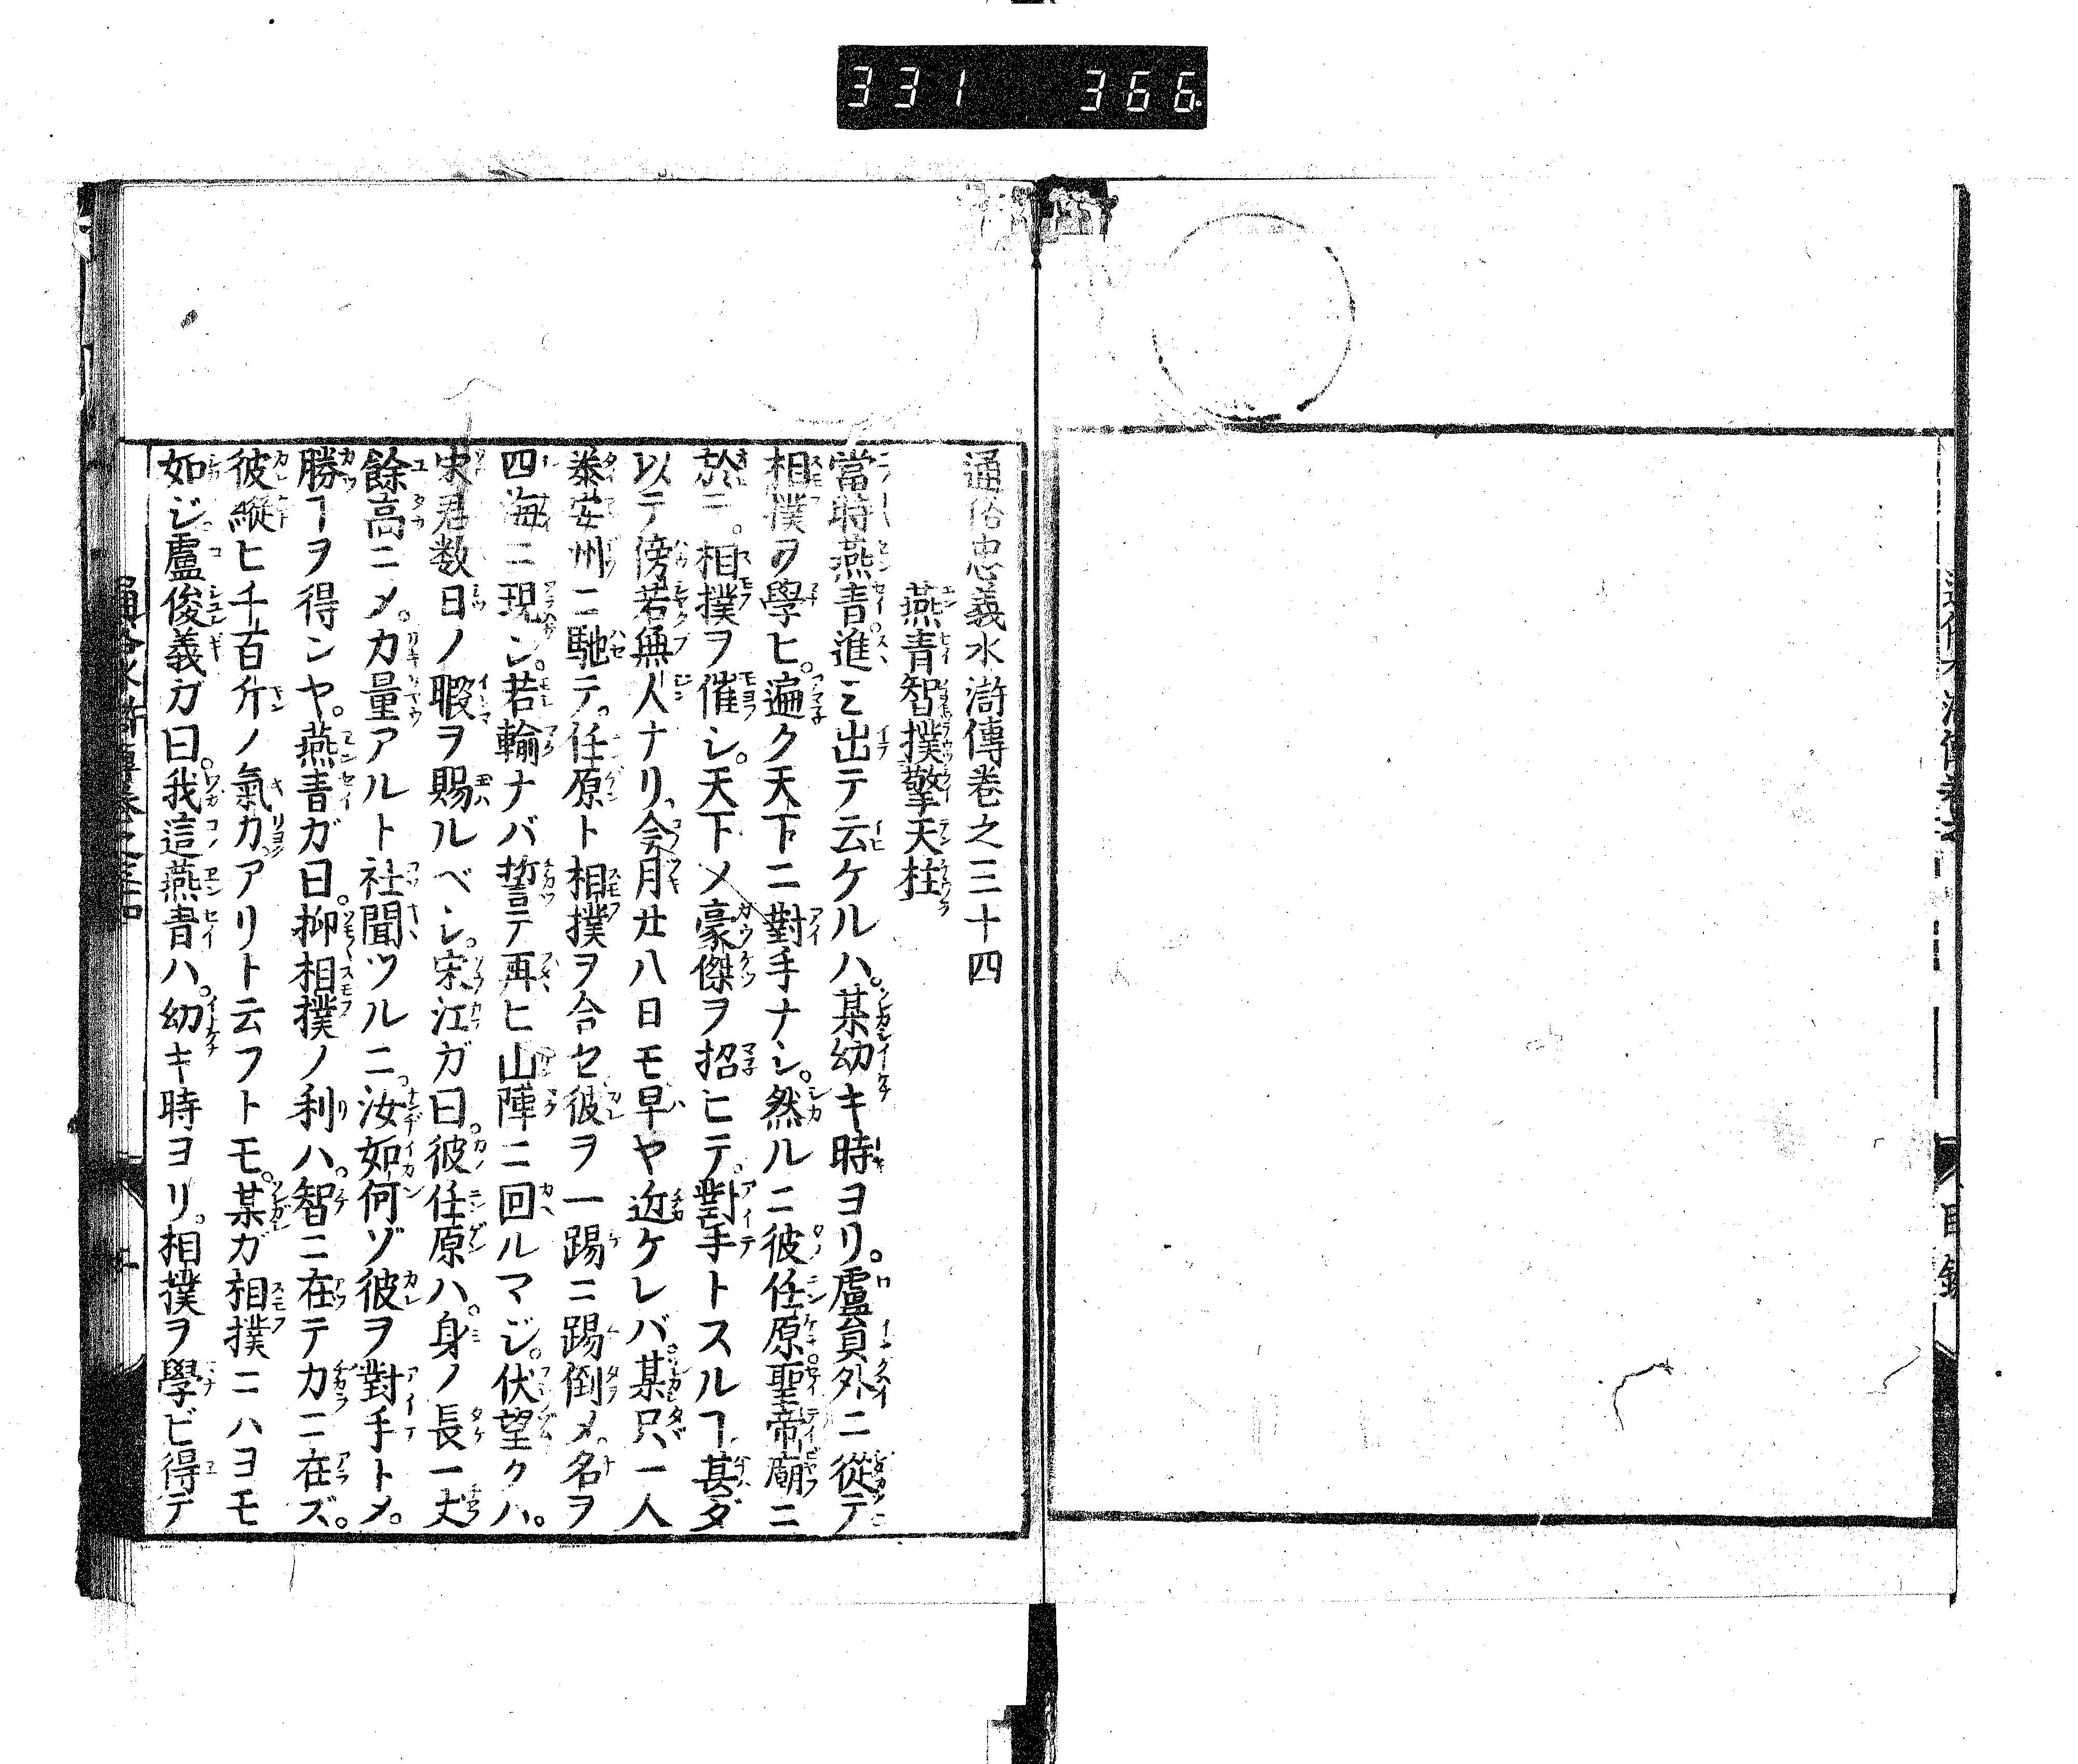 331 366
目錄
通俗忠義水滸傳卷之三十四
燕青智撲擎天柱
當時燕青進ミ出テ云ケルハ。某幼キ時ヨリ。盧員外ニ從テ
相撲ヲ學ヒ。遍ク天下ニ對手ナシ。然ルニ彼任原聖帝廟ニ
於ニ。相撲ヲ催シ。天下ノ豪傑ヲ招ヒテ。對手トスルヿ甚ダ
以テ傍若無人ナリ。今月廿八日モ早ヤ近ケレバ。某只一人
泰安州ニ馳テ。任原ト相撲ヲ合セ彼ヲ一踢ニ踢倒メ。名ヲ
四海ニ現ン。若輸ナバ誓テ再ヒ山陣ニ回ルマジ。伏望クハ。
宋君数日ノ暇ヲ賜ルベシ。宋江ガ曰。彼任原ハ。身ノ長一丈
餘高ニメ。力量アルト社聞ツルニ。汝如何ゾ彼ヲ對手トメ。
勝ヿヲ得ンヤ。燕青ガ曰。抑相撲ノ利ハ。智ニ在テ力ニ在ズ。
彼縦ヒ千百斤ノ氣力アリト云フトモ。某ガ相撲ニハヨモ
如ジ。盧俊義ガ曰。我這燕青ハ。幼キ時ヨリ。相撲ヲ學ビ得テ